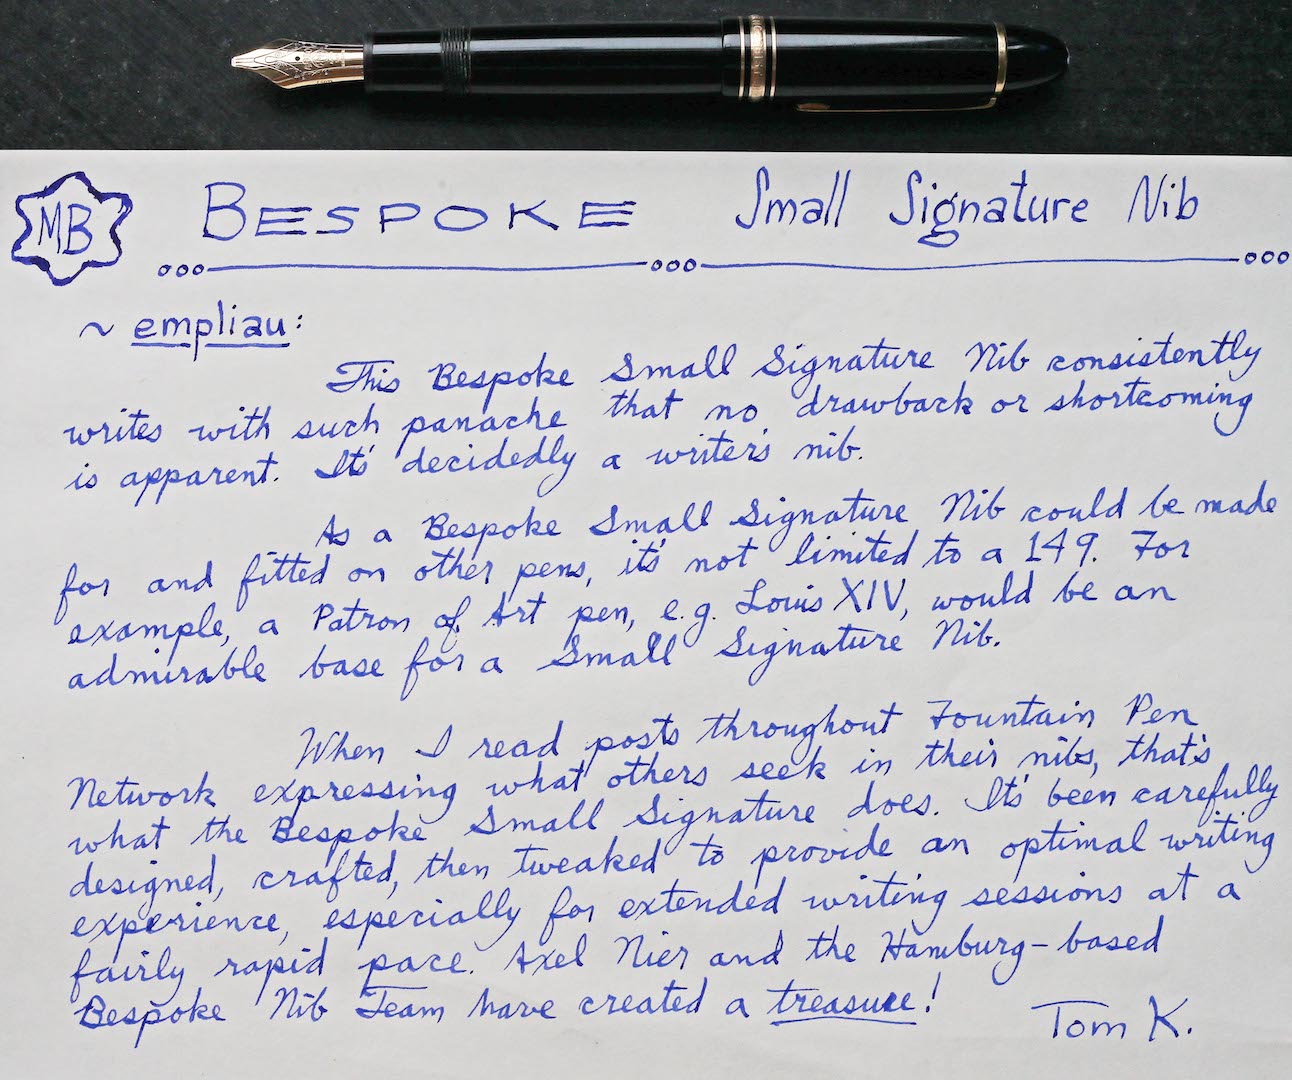 MB BESPOKE Small Signature Nib
~ empliau:
This Bespoke Small Signature Nib consistently
writes with such panache that no drawback or shortcoming
is apparent. It's decidedly a writer's nib.
As a Bespoke Small Signature Nib could be made
for and fitted on other pens, it's not limited to a 149. For
example, a Patron of Art pen, e.g. Louis XIV, would be an
admirable base for a Small Signature Nib.
When I read posts throughout Fountain Pen
Network expressing what others seek in their nibs, that's
what the Bespoke Small Signature does. It's been carefully
designed, crafted, then tweaked to provide an optimal writing
experience, especially for extended writing sessions at a
fairly rapid pace. Axel Nier and the Hamburg-based
Bespoke Nib Team have created a treasure!
Tom K.